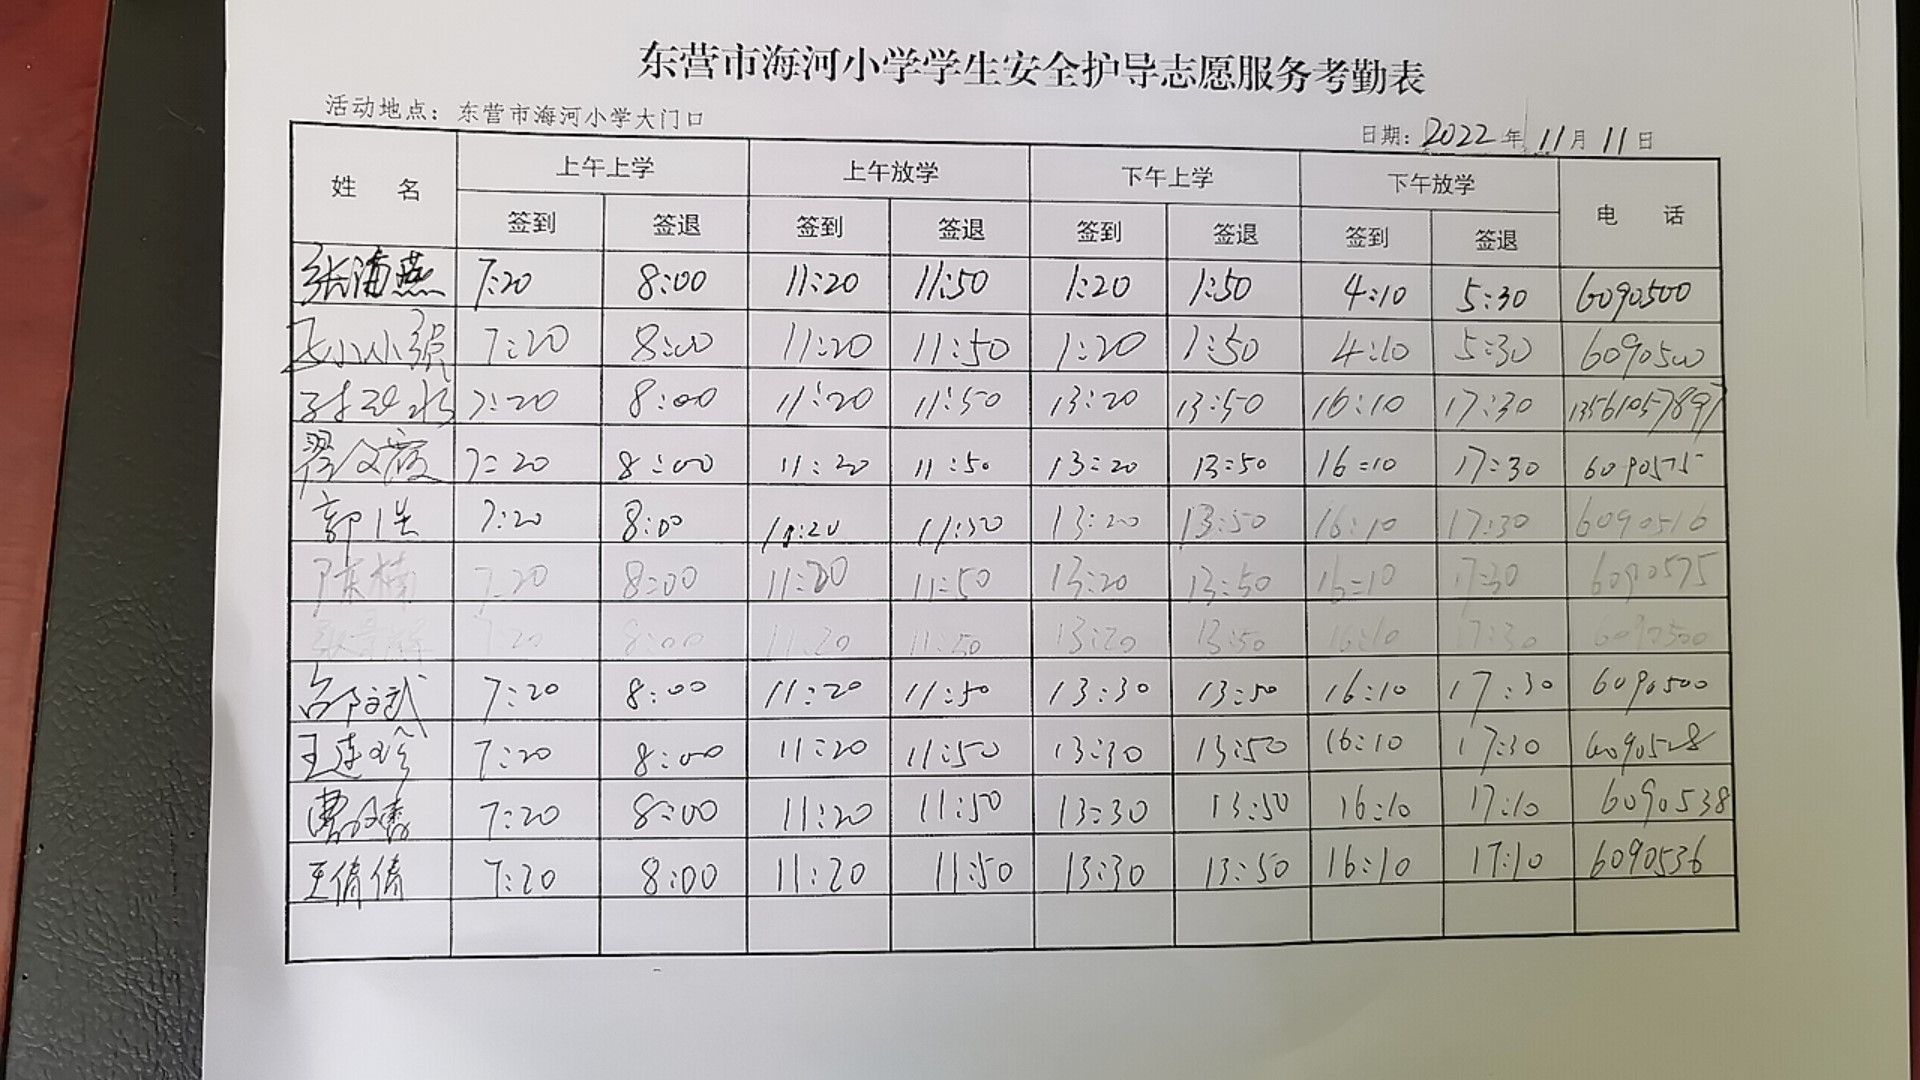 东营市海河小学学生安全护导志愿服务考勤表
活动地点：东营市海河小学大门口
日期：2022年11月11日
姓 名 上午上学 上午放学 下午上学 下午放学 电 话
签到 签退 签到 签退 签到 签退 签到 签退
张海燕 7:20 8:00 11:20 11:50 1:20 1:50 4:10 5:30 6090500
7:20 8:00 11:20 11:50 1:20 1:50 4:10 5:30 6090500
7:20 8:00 11:20 11:50 13:20 13:50 16:10 17:30 13561057897
翟文霞 7:20 8:00 11:20 11:50 13:20 13:50 16:10 17:30 6090575
郭浩 7:20 8:00 11:20 11:50 13:20 13:50 16:10 17:30 6090516
陈楠 7:20 8:00 11:20 11:50 13:20 13:50 16:10 17:30 6090575
7:20 8:00 11:20 11:50 13:20 13:50 16:10 17:30 6090500
7:20 8:00 11:20 11:50 13:30 13:50 16:10 17:30 6090500
王连珍 7:20 8:00 11:20 11:50 13:30 13:50 16:10 17:30 6090528
7:20 8:00 11:20 11:50 13:30 13:50 16:10 17:10 6090538
王倩倩 7:20 8:00 11:20 11:50 13:30 13:50 16:10 17:10 6090536